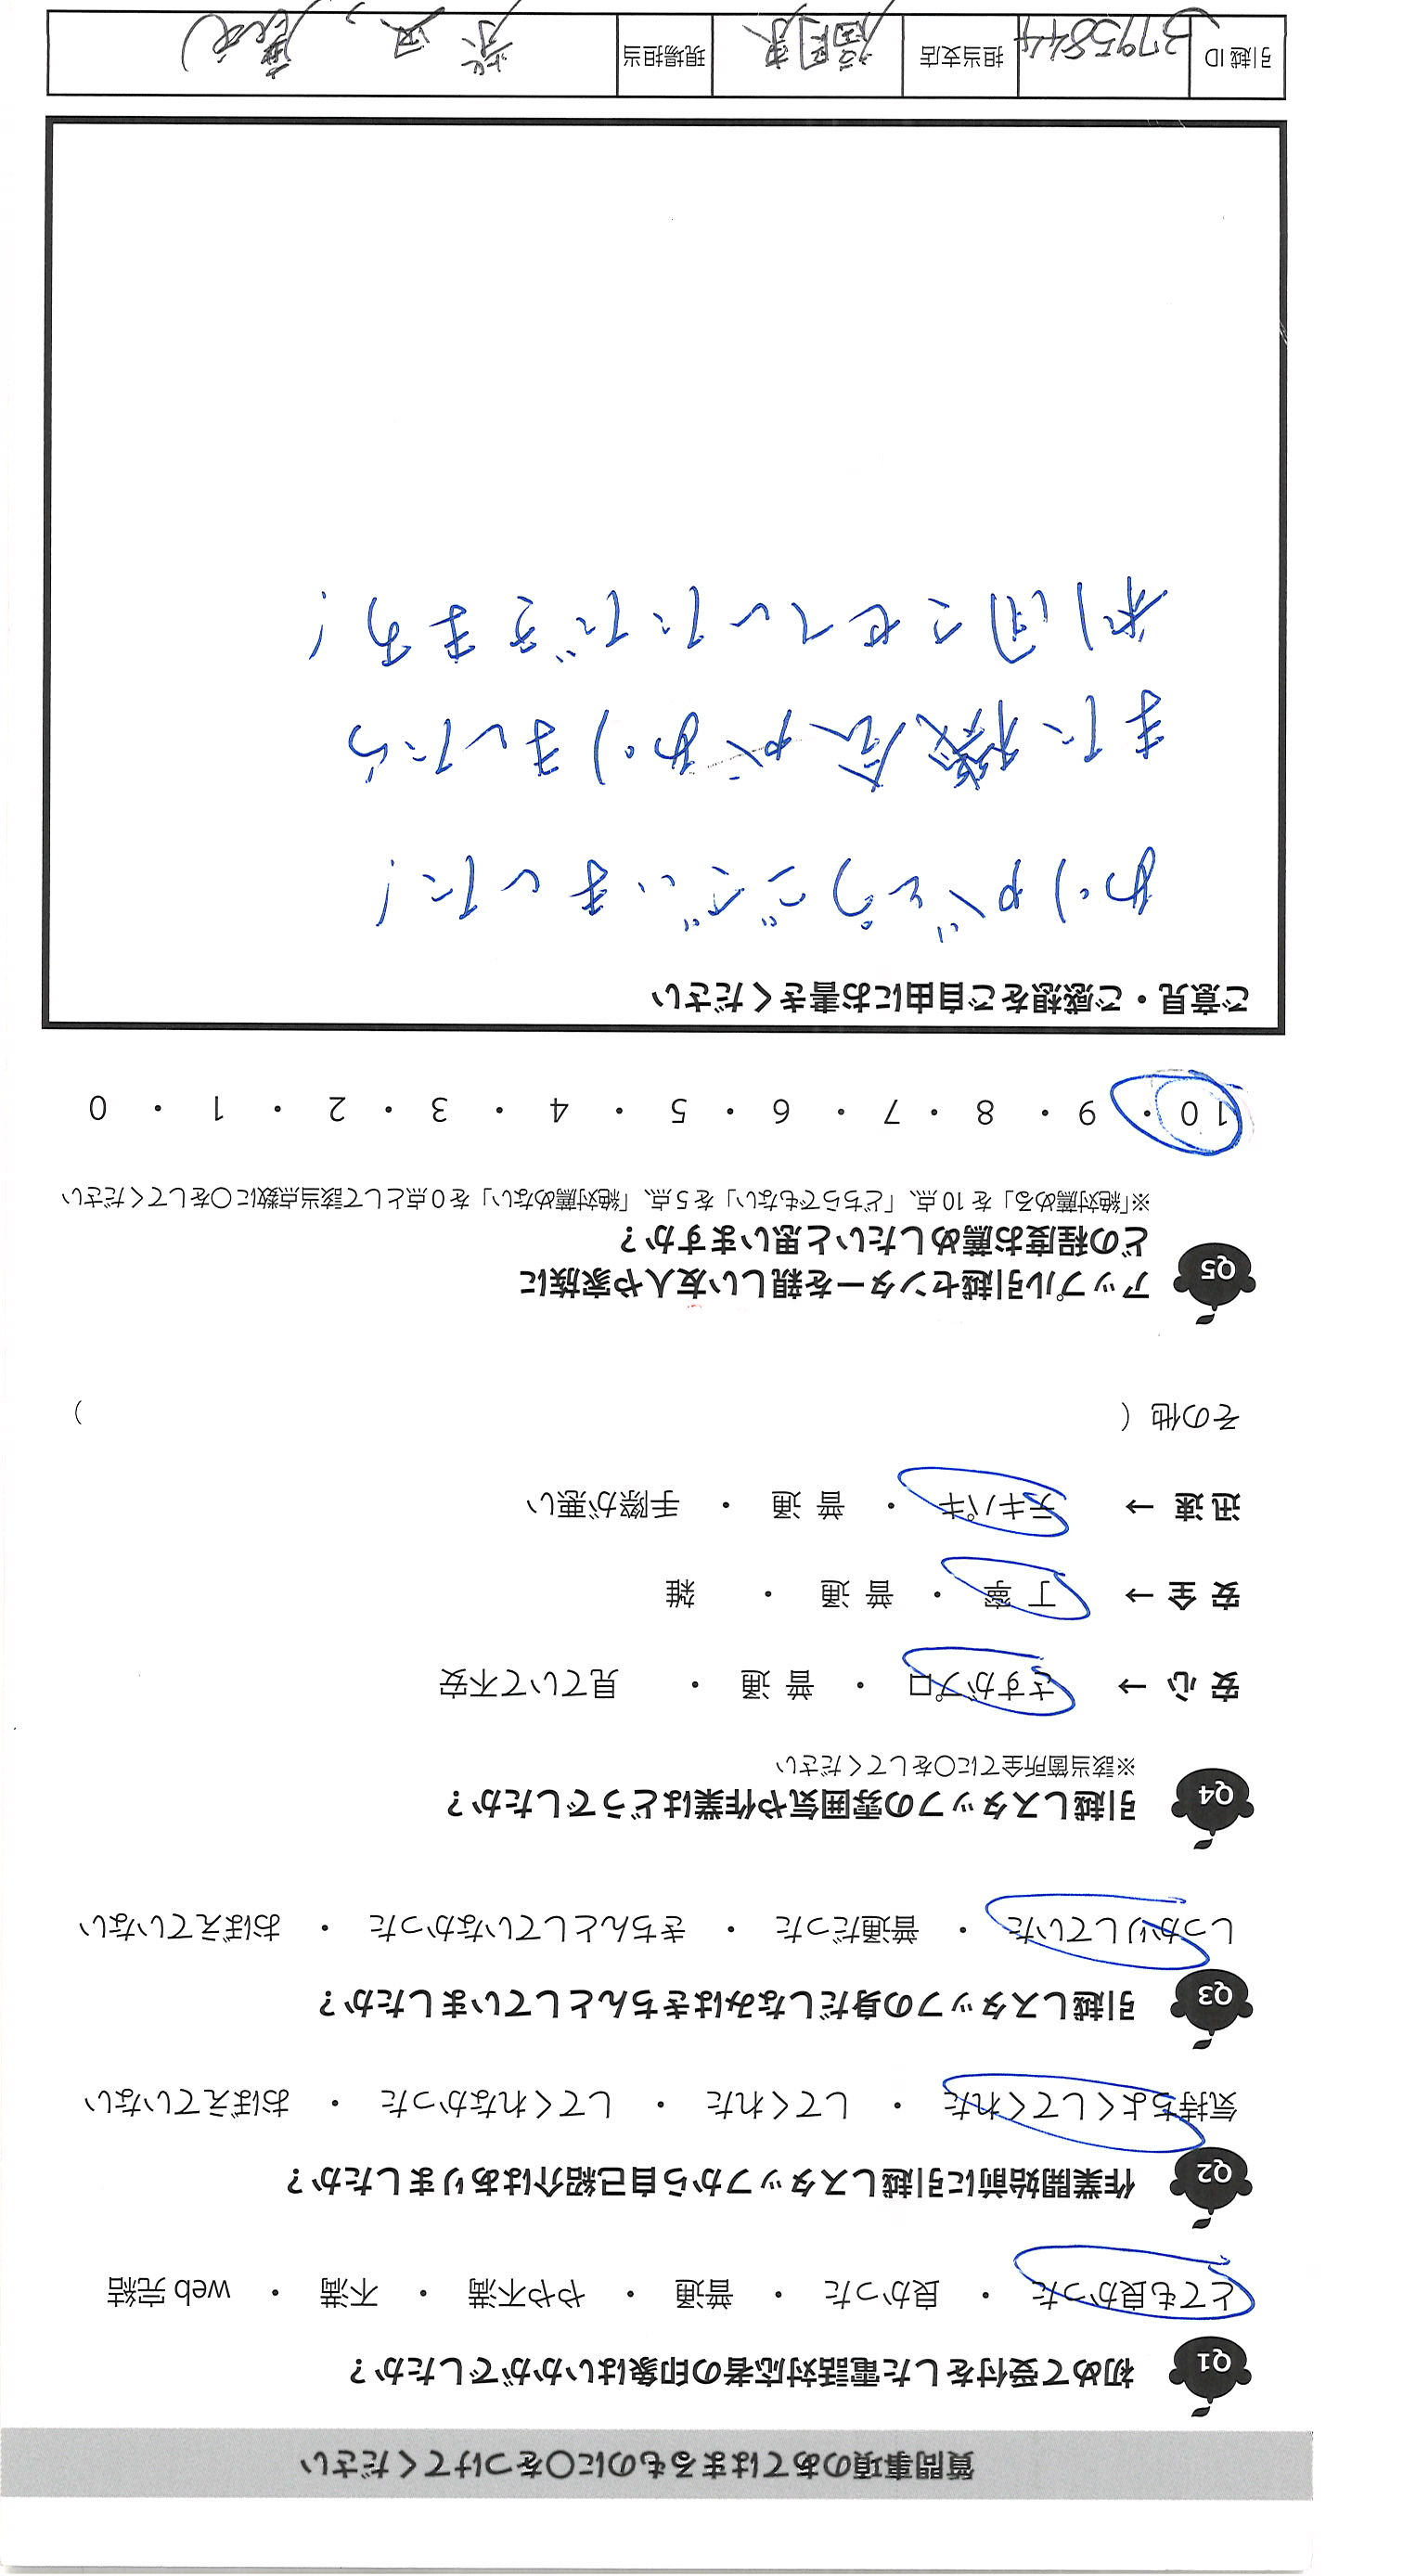 質問事項のあてはまるものに○をつけてください
Q1 初めて受付をした電話対応者の印象はいかがでしたか？
とても良かった ・ 良かった ・ 普通 ・ やや不満 ・ 不満 ・ web 完結
Q2 作業開始前に引越しスタッフから自己紹介はありましたか？
気持ちよくしてくれた ・ してくれた ・ してくれなかった ・ おぼえていない
Q3 引越しスタッフの身だしなみはきちんとしていましたか？
しっかりしていた ・ 普通だった ・ きちんとしていなかった ・ おぼえていない
Q4 引越しスタッフの雰囲気や作業はどうでしたか？
※該当箇所全てに○をしてください
安 心 → さすがプロ ・ 普 通 ・ 見ていて不安
安 全 → 丁 寧 ・ 普 通 ・ 雑
迅 速 → テキパキ ・ 普 通 ・ 手際が悪い
その他（ ）
Q5 アップル引越センターを親しい友人や家族に
どの程度お薦めしたいと思いますか？
※「絶対薦める」を 10 点、「どちらでもない」を 5 点、「絶対薦めない」を 0 点として該当点数に○をしてください
10 ・ 9 ・ 8 ・ 7 ・ 6 ・ 5 ・ 4 ・ 3 ・ 2 ・ 1 ・ 0
ご意見・ご感想をご自由にお書きください
ありがとうございました！
また機会がありましたら
利用させていただきます！
引越 ID 3795844 担当支店 福岡東 現場担当